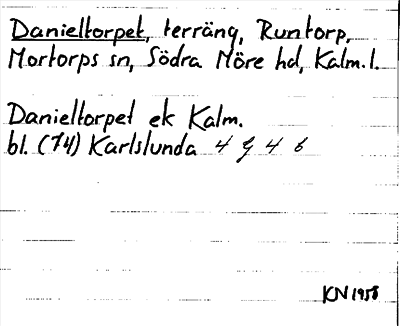 Danieltorpet, terräng, Runtorp,
Mortorps sn, Södra Möre hd, Kalm. l.
Danieltorpet ek Kalm.
bl. (74) Karlslunda 4 g 4 b
KN 1958